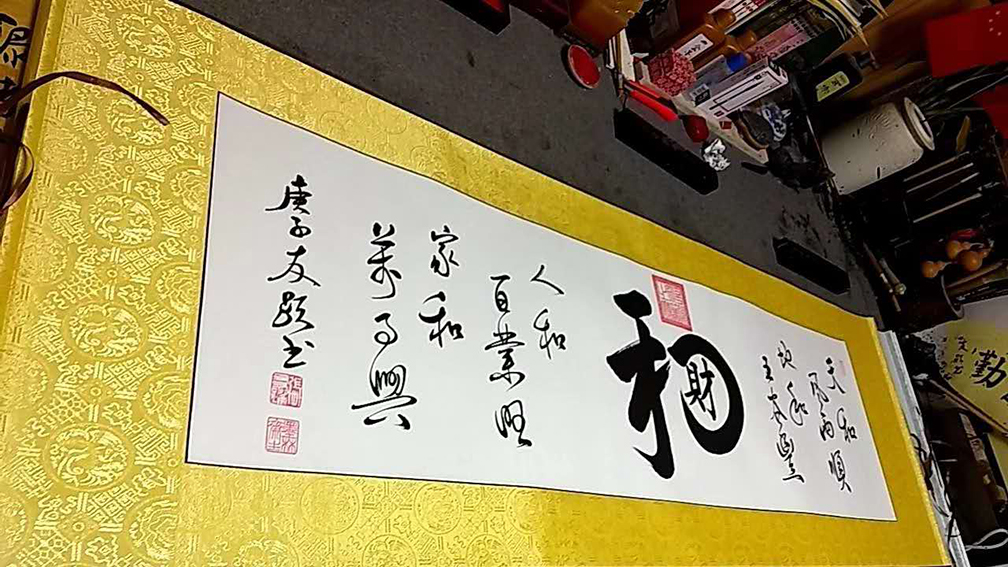 天和
風雨順
地和
五谷豐
和
財
人和
百業旺
家和
萬事興
庚子友顯书
勤